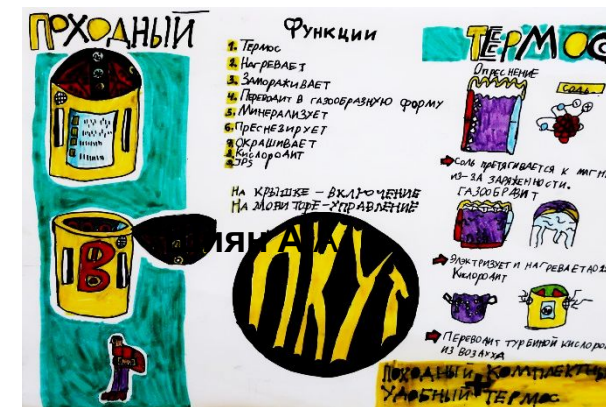 ПОХОДНЫЙ
ФУНКЦИИ
1. ТЕРМОС
2. НАГРЕВАЕТ
3. ЗАМОРАЖИВАЕТ
4. ПЕРЕВОДИТ В ГАЗООБРАЗНУЮ ФОРМУ
5. МИНЕРАЛИЗУЕТ
6. ПРЕСНЕЗИРУЕТ
ОКРАШИВАЕТ
КИСЛОРОДИТ
JPS
НА КРЫШКЕ – ВКЛЮЧЕНИЕ
НА МОНИТОРЕ – УПРАВЛЕНИЕ
В
ТЕРМОС
ОПРЕСНЕНИЕ
СОЛЬ
СОЛЬ ПРЕТЯГИВАЕТСЯ К МАГН
ИЗ-ЗА ЗАРЯЖЕННОСТИ.
ГАЗООБРАДИТ
ЭЛЭКТРИЗУЕТ И НАГРЕВАЕТ
КИСЛОРОДИТ
ПЕРЕВОДИТ ТУРБИНОЙ КИСЛОРО
ИЗ ВОЗДУХА
ПОХОДНЫЙ КОМПЛЕКТНЫ
УДОБНЫЙ ТЕРМОС